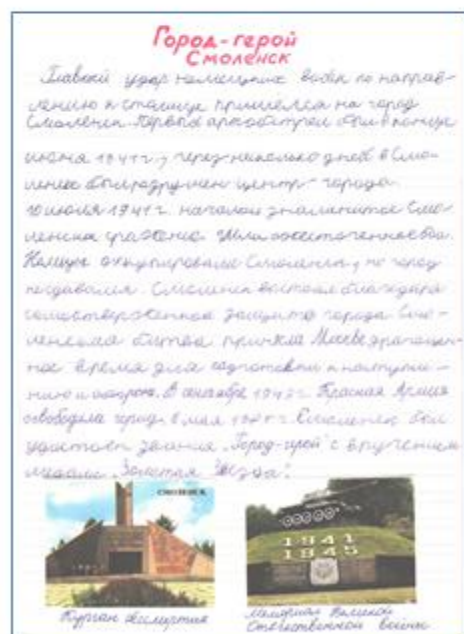 Город-герой
Смоленск
Главный удар немецких войск по направ-
лению к столице пришёлся на город
Смоленск. Первый артобстрел был в конце
июня 1941 г., через несколько дней в Смо-
ленске был разрушен центр города.
10 июля 1941 г. началось знаменитое Смо-
ленское сражение. Шли ожесточенные бои.
Немцы оккупировали Смоленск, но город
не сдавался. Смоленск выстоял благодаря
самоотверженной защите города. Смо-
ленская битва принесла Москве драгоцен-
ное время для подготовки к наступле-
нию и обороне. В сентябре 1943 г. Красная Армия
освободила город. 6 мая Смоленск был
удостоен звания "Город-герой" с вручением
медали "Золотая Звезда".
СМОЛЕНСК
1941
1945
Курган бессмертия
Мемориал Великой
Отечественной войны